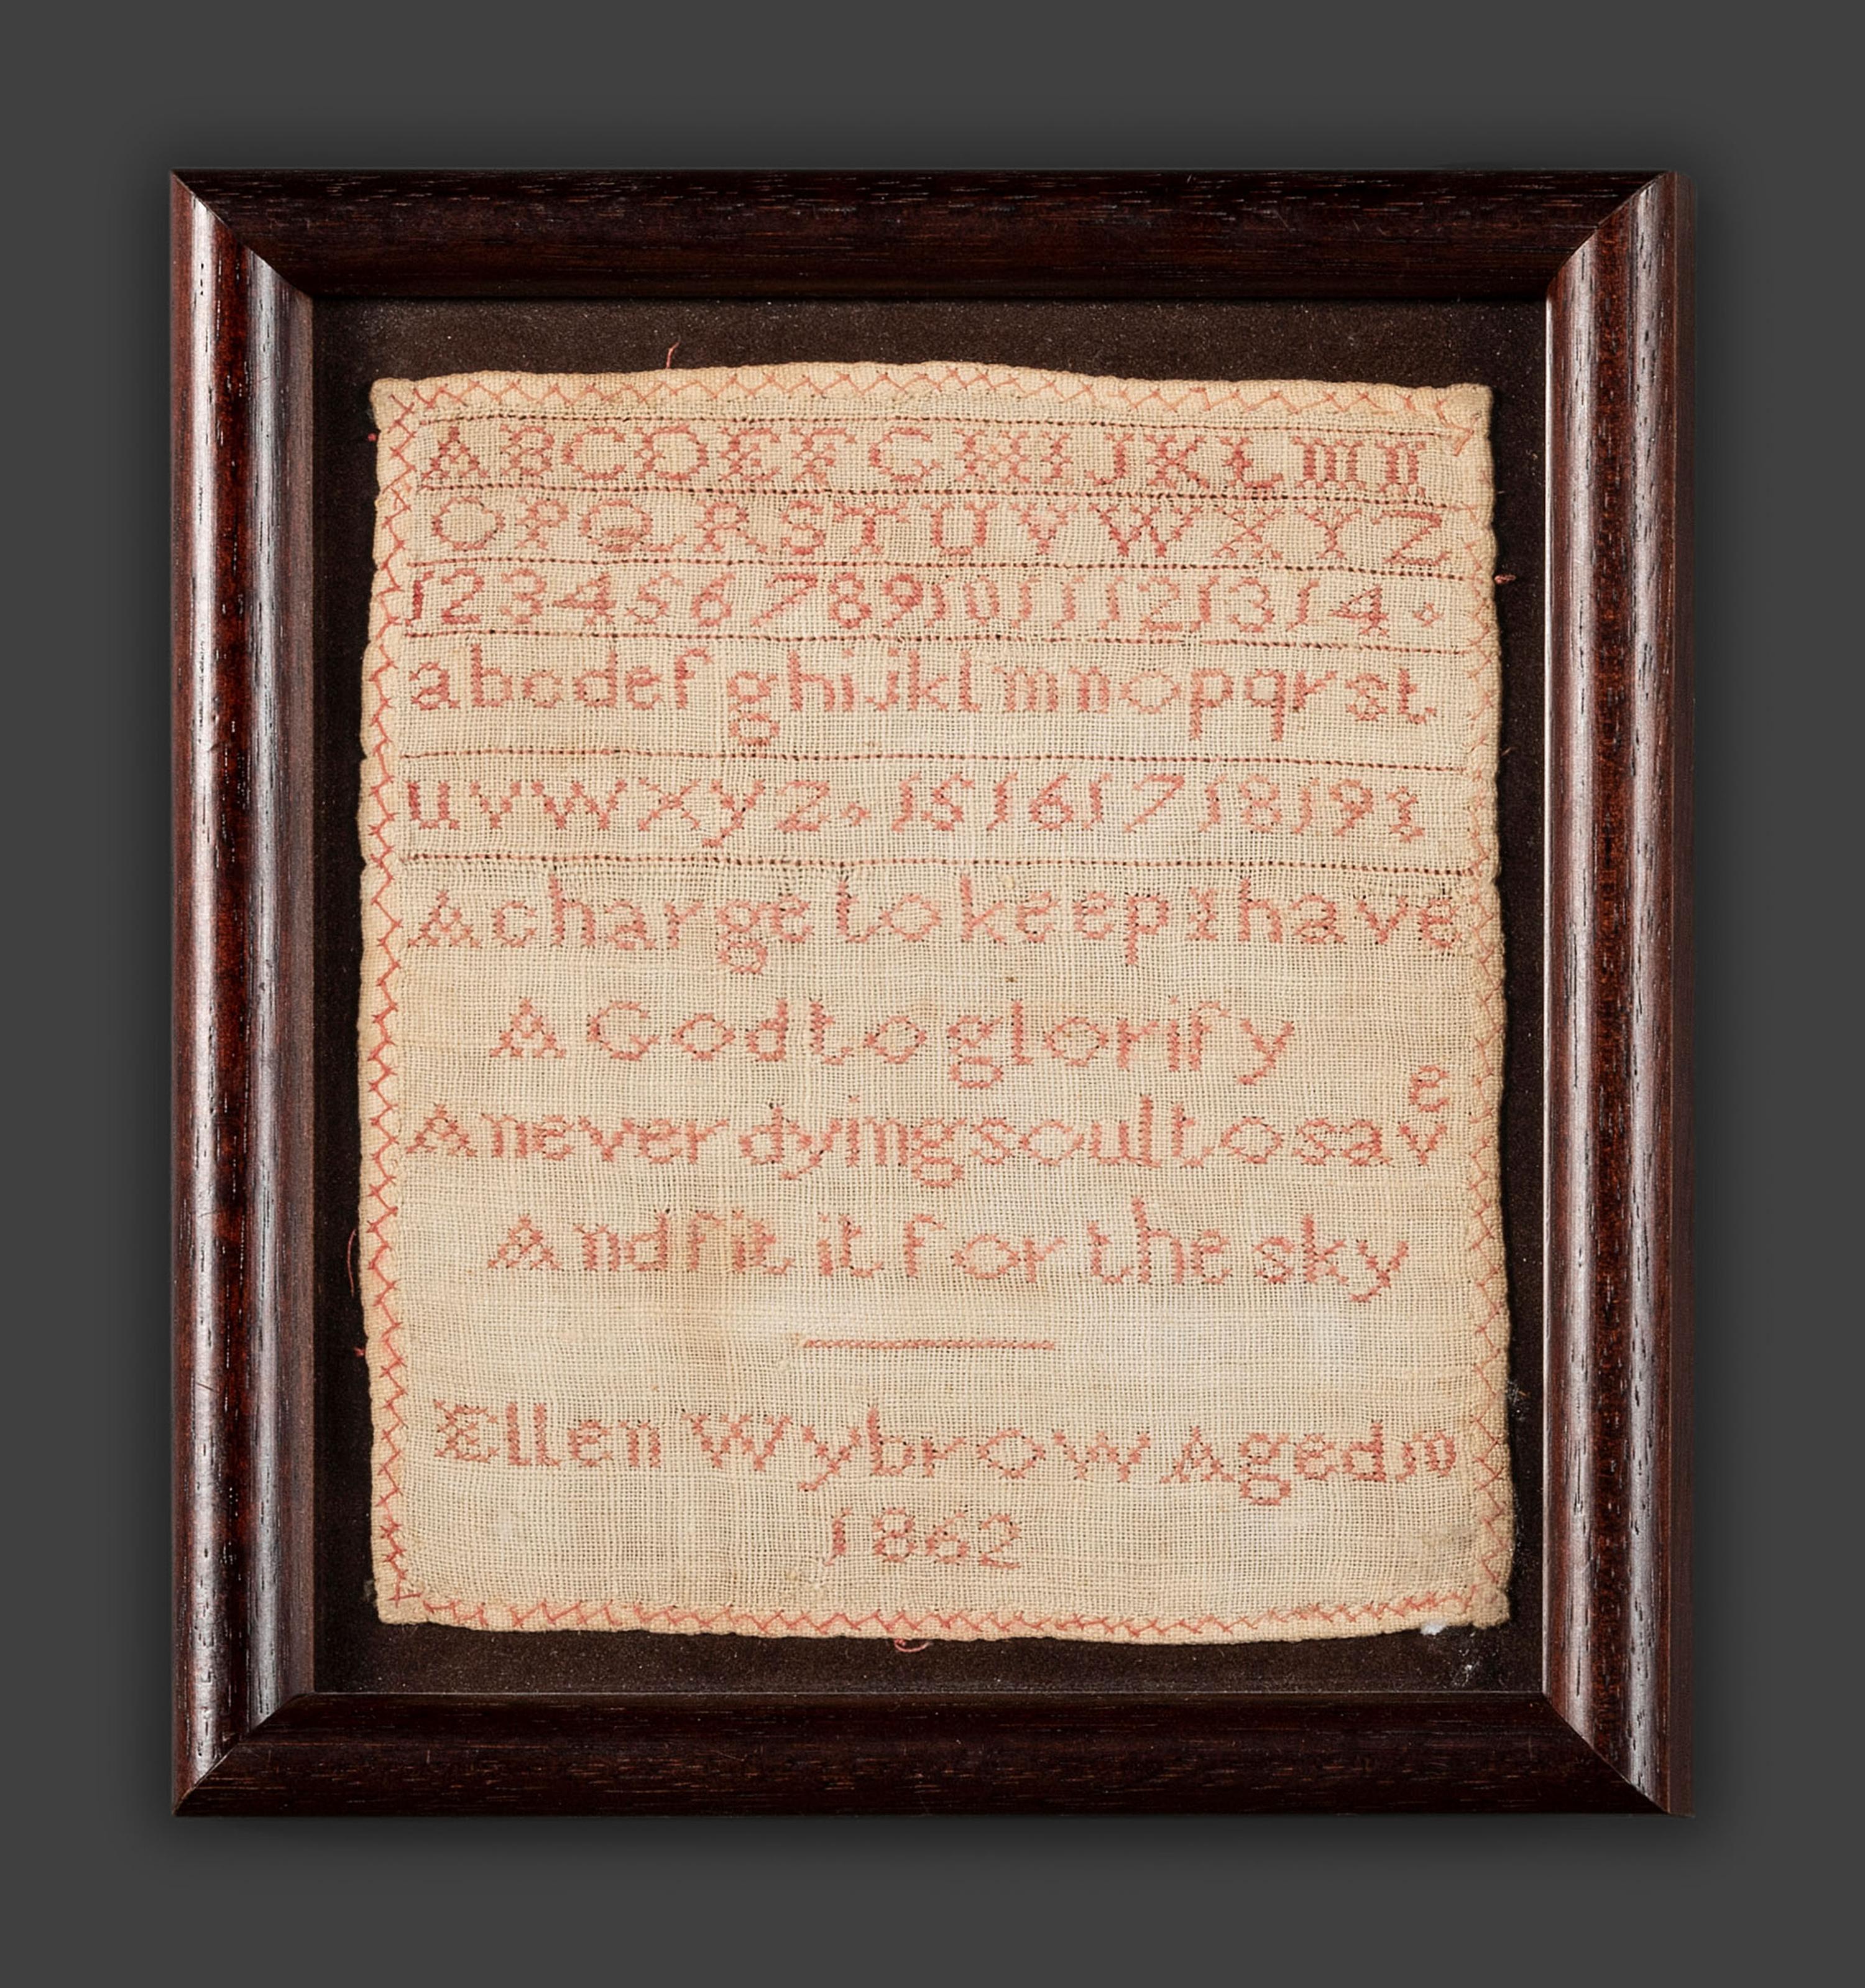 ABCDEFGHIJKLMN
OPQRSTUVWXYZ
1234567891011121314
abcdefghijklmnopqrst
uvwxyz. 1516171819
A charge to keep I have
A God to glorify
A never dying soul to save
And fit it for the sky
Ellen Wybrow Aged 10
1862